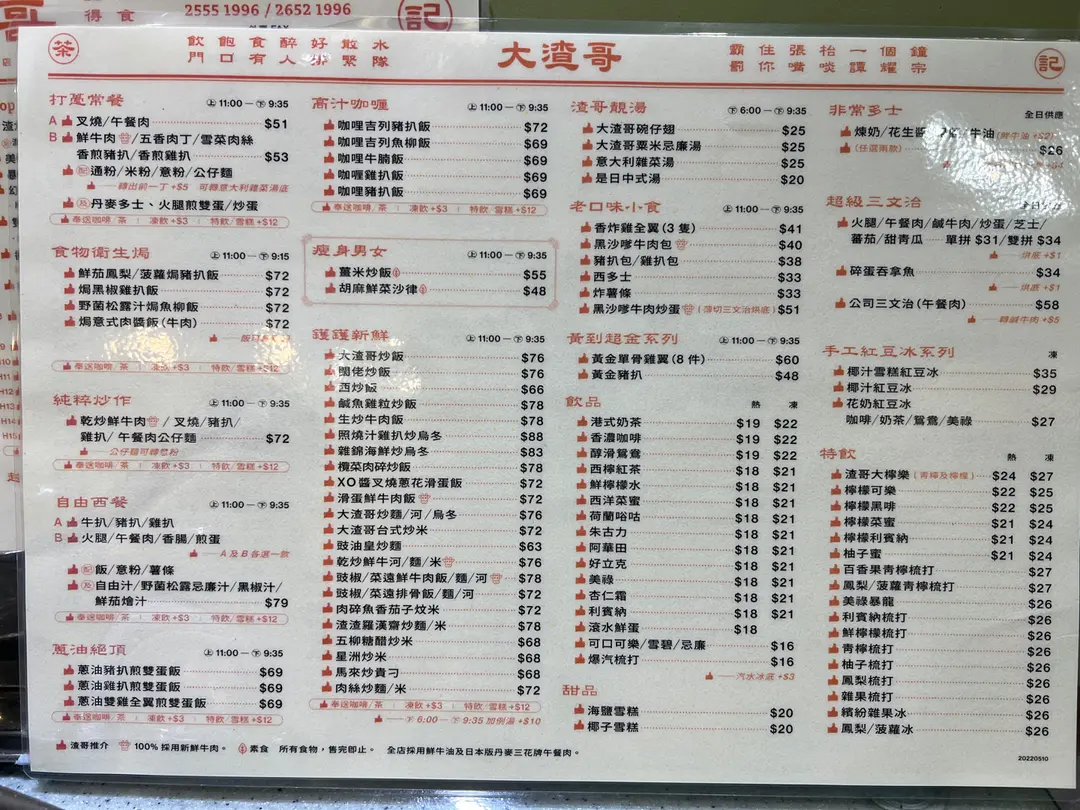 得食
2555 1996 / 2652 1996
記
茶
飲飽食醉好散水
門口有人排緊隊
大渣哥
霸住張枱一個鐘
罰你嘴啖譚耀宗
記
打躉常餐 上 11:00 — 下 9:35
A 叉燒/午餐肉 $51
B 鮮牛肉/五香肉丁/雪菜肉絲
香煎豬扒/香煎雞扒 $53
配 通粉/米粉/意粉/公仔麵
轉出前一丁 +$5 可轉意大利雜菜湯底
及 丹麥多士、火腿煎雙蛋/炒蛋
奉送咖啡/茶 | 凍飲+$3 | 特飲/雪糕+$12
食物衛生焗 上 11:00 — 下 9:15
鮮茄鳳梨/菠蘿焗豬扒飯 $72
焗黑椒雞扒飯 $72
野菌松露汁焗魚柳飯 $72
焗意式肉醬飯(牛肉) $72
奉送咖啡/茶 | 凍飲+$3 | 特飲/雪糕+$12
純粹炒作 上 11:00 — 下 9:35
乾炒鮮牛肉/叉燒/豬扒/
雞扒/午餐肉公仔麵 $72
公仔麵可轉意粉
奉送咖啡/茶 | 凍飲+$3 | 特飲/雪糕+$12
自由西餐 上 11:00 — 下 9:35
A 牛扒/豬扒/雞扒
B 火腿/午餐肉/香腸/煎蛋
A及B各選一款
配 飯/意粉/薯條
及 自由汁/野菌松露忌廉汁/黑椒汁/
鮮茄燴汁 $79
奉送咖啡/茶 | 凍飲+$3 | 特飲/雪糕+$12
蔥油絕頂 上 11:00 — 下 9:35
蔥油豬扒煎雙蛋飯 $69
蔥油雞扒煎雙蛋飯 $69
蔥油雙雞全翼煎雙蛋飯 $69
奉送咖啡/茶 | 凍飲+$3 | 特飲/雪糕+$12
高汁咖喱 上 11:00 — 下 9:35
咖哩吉列豬扒飯 $72
咖哩吉列魚柳飯 $69
咖哩牛腩飯 $69
咖喱雞扒飯 $69
咖哩豬扒飯 $69
奉送咖啡/茶 | 凍飲+$3 | 特飲/雪糕+$12
瘦身男女 上 11:00 — 下 9:35
薑米炒飯 $55
胡麻鮮菜沙律 $48
鑊鑊新鮮 上 11:00 — 下 9:35
大渣哥炒飯 $76
闊佬炒飯 $76
西炒飯 $66
鹹魚雞粒炒飯 $78
生炒牛肉飯 $78
照燒汁雞扒炒烏冬 $88
雜錦海鮮炒烏冬 $83
欖菜肉碎炒飯 $78
XO醬叉燒蔥花滑蛋飯 $72
滑蛋鮮牛肉飯 $72
大渣哥炒麵/河/烏冬 $76
大渣哥台式炒米 $72
豉油皇炒麵 $63
乾炒鮮牛河/麵/米 $76
豉椒/菜遠鮮牛肉飯/麵/河 $78
豉椒/菜遠排骨飯/麵/河 $72
肉碎魚香茄子炆米 $72
渣渣羅漢齋炒麵/米 $78
五柳糖醋炒米 $68
星洲炒米 $68
馬來炒貴刁 $68
肉絲炒麵/米 $72
奉送咖啡/茶 | 凍飲+$3 | 特飲/雪糕+$12
下 6:00 — 下 9:35 加例湯 +$10
渣哥靚湯 下 6:00 — 下 9:35
大渣哥碗仔翅 $25
大渣哥粟米忌廉湯 $25
意大利雜菜湯 $25
是日中式湯 $20
老口味小食 上 11:00 — 下 9:35
香炸雞全翼(3 隻) $41
黑沙嗲牛肉包 $40
豬扒包/雞扒包 $38
西多士 $33
炸薯條 $33
黑沙嗲牛肉炒蛋(薄切三文治烘底) $51
黃到超金系列 上 11:00 — 下 9:35
黃金單骨雞翼(8 件) $60
黃金豬扒 $48
飲品 熱 凍
港式奶茶 $19 $22
香濃咖啡 $19 $22
醇滑鴛鴦 $19 $22
西檸紅茶 $18 $21
鮮檸檬水 $18 $21
西洋菜蜜 $18 $21
荷蘭唂咕 $18 $21
朱古力 $18 $21
阿華田 $18 $21
好立克 $18 $21
美祿 $18 $21
杏仁霜 $18 $21
利賓納 $18 $21
滾水鮮蛋 $18
可口可樂/雪碧/忌廉 $16
爆汽梳打 $16
汽水冰底 +$3
甜品
海鹽雪糕 $20
椰子雪糕 $20
非常多士 全日供應
煉奶/花生醬 牛油(鮮牛油 +$2)
(任選兩款) $26
超級三文治
火腿/午餐肉/鹹牛肉/炒蛋/芝士/
蕃茄/甜青瓜 單拼 $31/雙拼 $34
烘底 +$1
碎蛋吞拿魚 $34
烘底 +$1
公司三文治(午餐肉) $58
轉鹹牛肉 +$5
手工紅豆冰系列 凍
椰汁雪糕紅豆冰 $35
椰汁紅豆冰 $29
花奶紅豆冰
咖啡/奶茶/鴛鴦/美祿 $27
特飲 熱 凍
渣哥大檸樂(青檸及檸檬) $24 $27
檸檬可樂 $22 $25
檸檬黑啡 $22 $25
檸檬菜蜜 $21 $24
檸檬利賓納 $21 $24
柚子蜜 $21 $24
百香果青檸梳打 $27
鳳梨/菠蘿青檸梳打 $27
美祿暴龍 $26
利賓納梳打 $26
鮮檸檬梳打 $26
青檸梳打 $26
柚子梳打 $26
鳳梨梳打 $26
雜果梳打 $26
繽紛雜果冰 $26
鳳梨/菠蘿冰 $26
渣哥推介 100% 採用新鮮牛肉。 素食 所有食物，售完即止。 全店採用鮮牛油及日本版丹麥三花牌午餐肉。
20220510